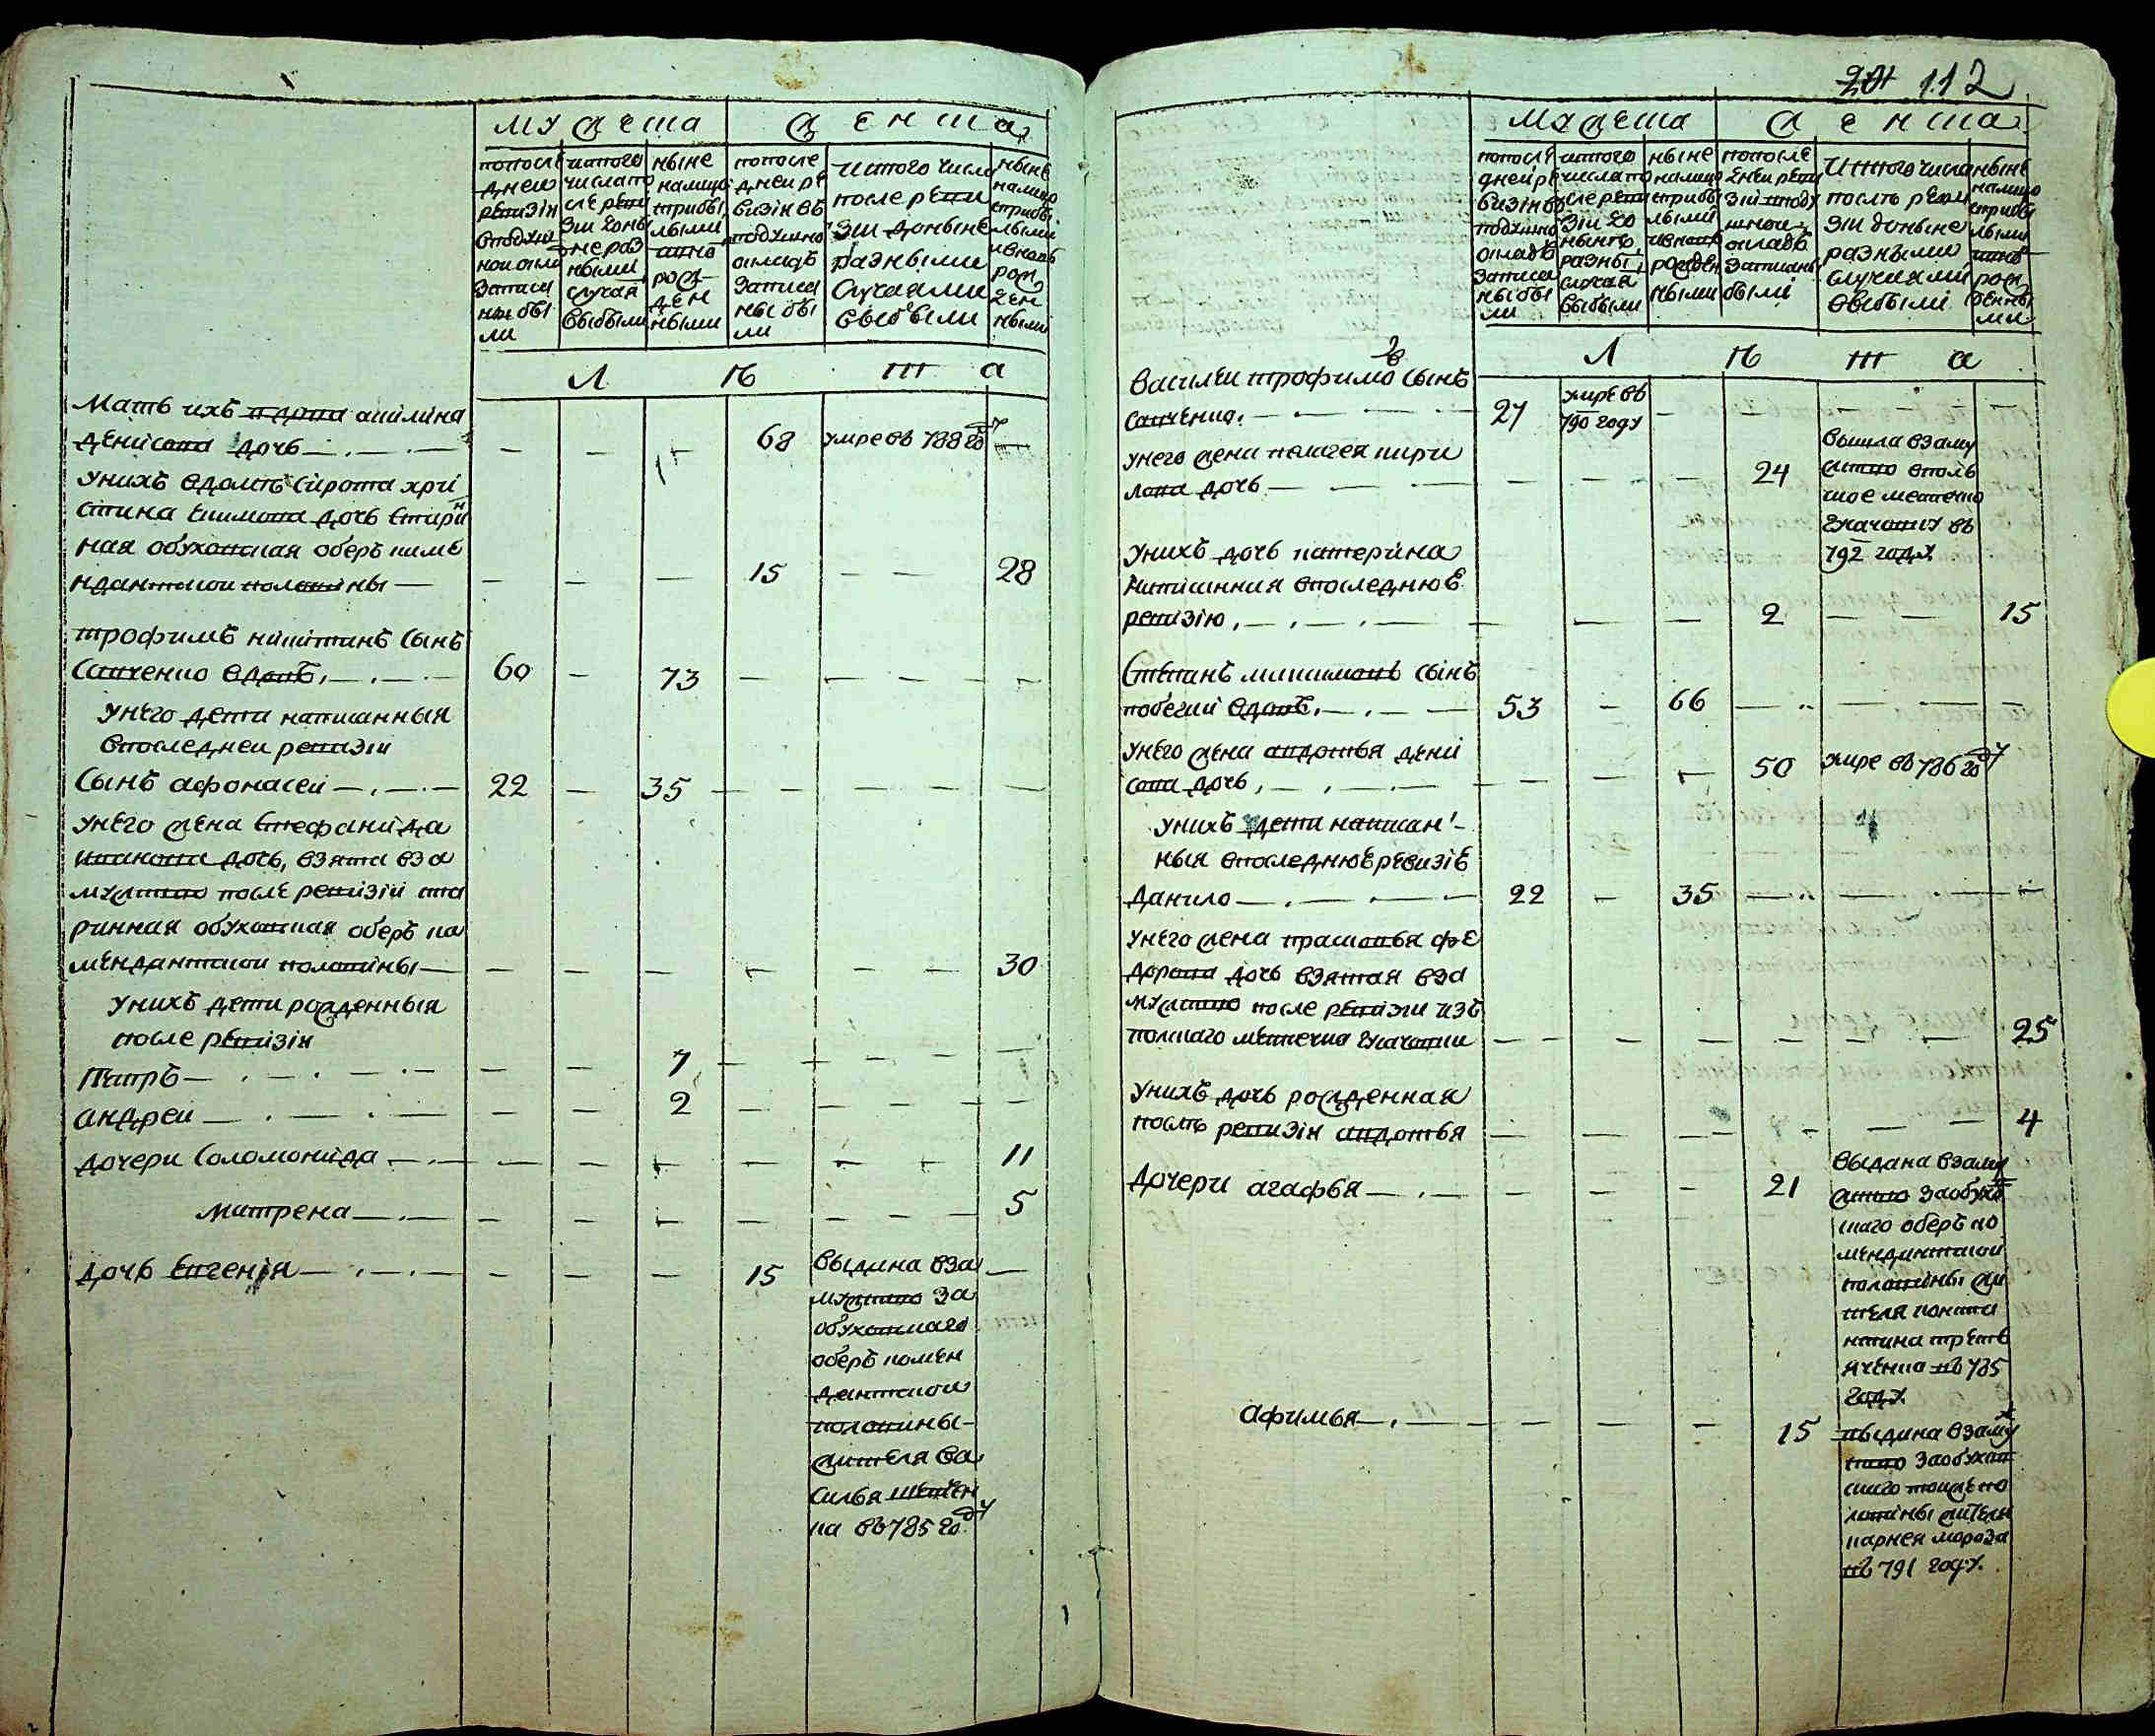 мужеска
женска
попосле
дней
ревизіи
вподуш
ной окла
записа
ны бы
ли
истого
числа по
сле реви
зіи доны
не раз
ными
случая
выбыли
ныне
налицо
сприбы
лыми
рож
ден
ными
попосле
дней ре
визіи въ
подушно
окладъ
записа
ны бы
ли
истого числа
после реви
зіи доныне
разными
случаями
выбыли
ныне
налицо
сприбы
лыми
ивновь
рож
ден
ными
л ѣ т а
Мать ихъ вдова акилина
денисова дочь
68 умре въ 788 году
унихъ вдомѣ сирота хри
стина екимова дочь стары
ная обуховская оберъ коме
ндантской половины
15 28
трофимъ никитинъ сынъ
савченко вдовъ
60 73
унего дети написанныя
впоследней ревизіи
Сынъ афонасей
22 35
унего жена стефанида
иванова дочь, взята вза
мужство после ревизіи ста
ринная обуховская оберъ ко
мендантской половины
30
унихъ дети рожденныя
после ревизіи
Петръ 7
андрей 2
дочери Соломонида 11
матрена 5
дочь Евгенія 15
выдана вза
мужство за
обуховскаго
оберъ комен
дантской
половины
жителя ва
силья
въ 785 году
112
мужеска
женска
попосле
дней ре
визіи въ
подушно
окладъ
записа
ны бы
ли
истого
числа по
сле реви
зіи до
нынѣ
разны
случая
выбыли
ныне
налицо
сприбы
лыми
ивновь
рожден
ными
попосле
дней реви
зіи вподу
шной
окладъ
записаны
были
Истого числа
послѣ реви
зіи доныне
разными
случаями
выбыли
нынѣ
налицо
сприбы
лыми
ивновь
рож
денны
ми
л ѣ т а
василей трофимовъ сынъ
савченко
27 умре въ
790 году
унего жена пелагея кири
лова дочь
24
вышла взаму
жство вполь
ское местечко
въ
792 году
унихъ дочь катерина
написанная впоследнюю
ревизію
2 15
Степанъ максимовъ сынъ
вдовъ
53 66
унего жена авдотья дени
сова дочь
50 умре въ 786 году
унихъ дети написан
ныя впоследнюю ревизіе
данило
22 35
унего жена прасковья фе
дорова дочь взятая вза
мужство после ревизіи изъ
полскаго местечка
25
унихъ дочь рожденная
послѣ ревизіи авдотья
4
дочери агафья 21
выдана взаму
жство заобухо
вскаго оберъ ко
мендантской
половины жи
теля конста
нтина треть
яченка въ 785
году.
Афимья 15
выдана взаму
жство заобухов
скаго тоиже по
ловины жителя
карнея мороза
въ 791 году.